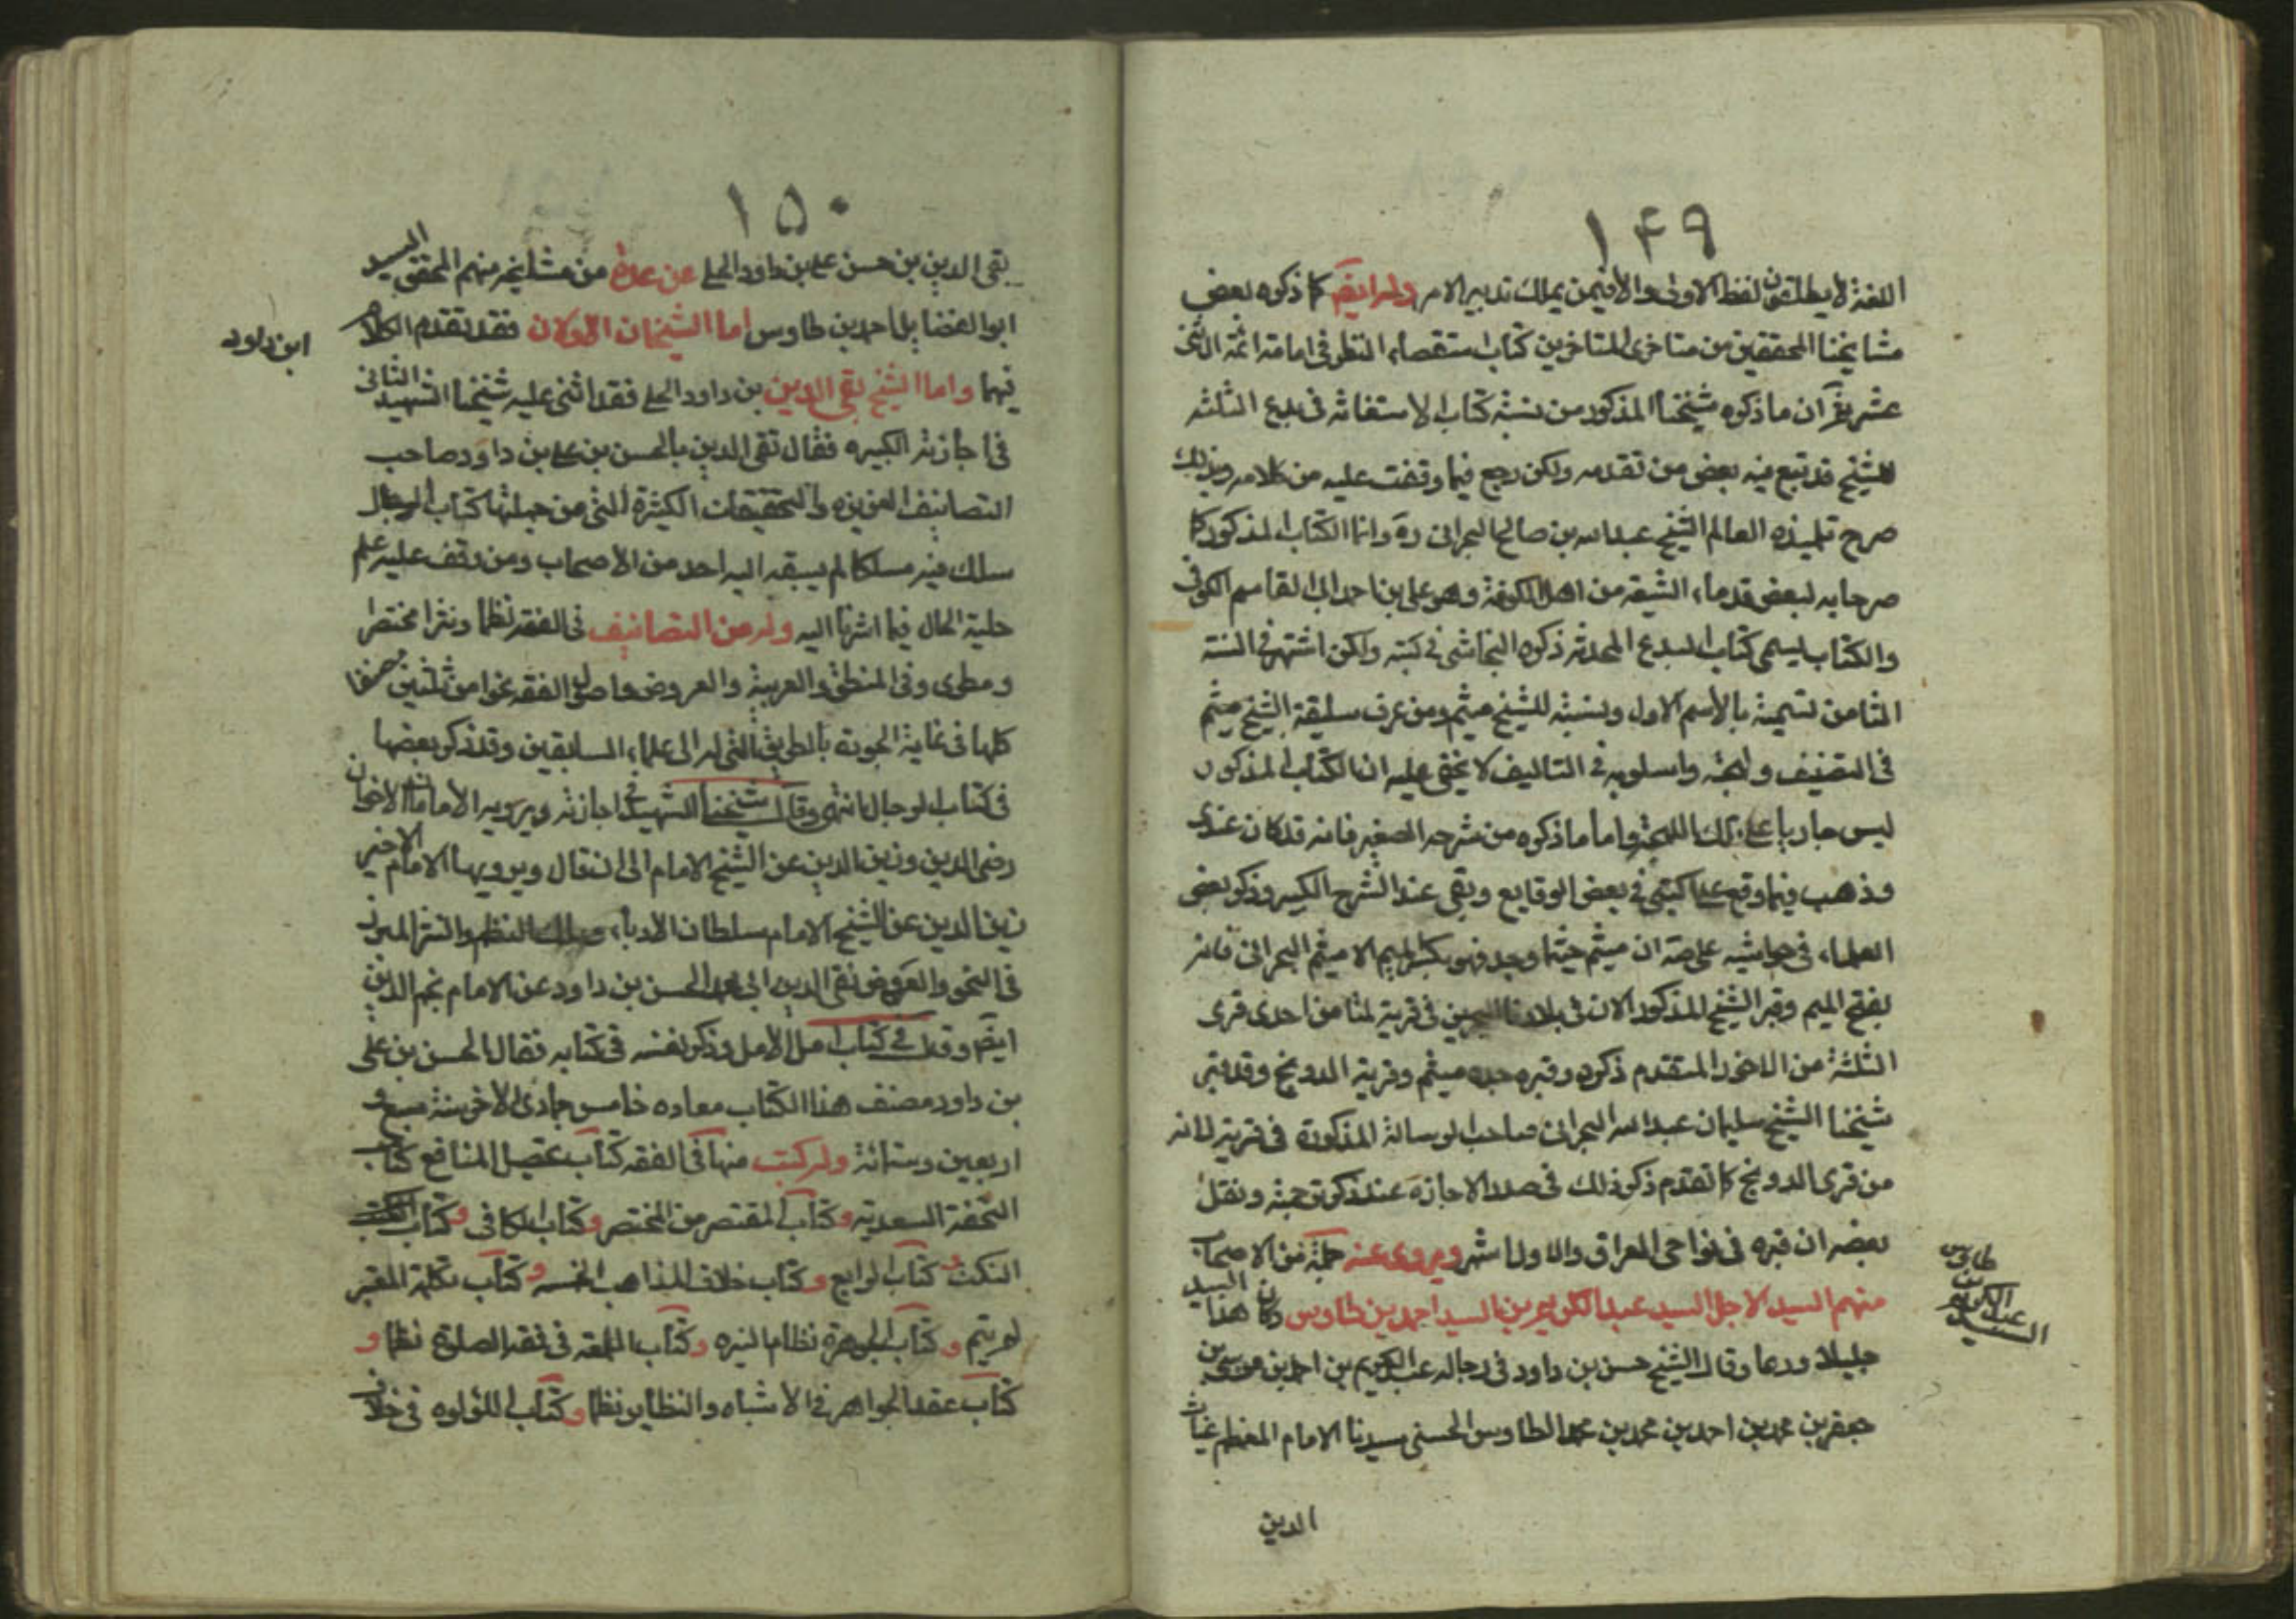 ١٤٩
اللغة لا يطلقون لفظ الاولى الا فيمن يملك تدبير الامر وله ايضا كما ذكره بعض
مشايخنا المحققين من متاخرى المتاخرين كتاب استقصاء النظر فى امامة ائمة الاثنى
عشر ثم ان ما ذكره شيخنا المذكور من نسبة كتاب الاستغاثه فى بدع الثلثه
للشيخ قد تبع فيه بعض من تقدمه ولكن رجع فيما وقفت عليه من كلامه وبذلك
صرح تلميذه العالم الشيخ عبدالله بن صالح البحرانى ره وانما الكتاب المذكور كما
صرحا به لبعض قدماء الشيعه من اهل الكوفة وهو على بن احمد ابى القاسم الكوفى
والكتاب يسمى كتاب البدع المحدثه ذكره النجاشى فى كتبه ولكن اشتهر فى السنة
الثامن تسميته بالاسم الاول ونسبته للشيخ ميثم ومن عرف سليقة الشيخ ميثم
فى التصنيف ولهجته واسلوبه فى التاليف لا يخفى عليه ان الكتاب المذكور
ليس جاريا على تلك اللهجة واما ما ذكره من شرحه الصغير فانه قد كان عندى
وذهب فيما وقع على كتبى فى بعض الوقايع وبقى عندى الشرح الكبير وذكر بعض
العلماء فى حواشيه على صه ان ميثم حيثما وجد فهو بكسر الميم الا ميثم البحرانى فانه
بفتح الميم وقبر الشيخ المذكور الان فى بلادنا البحرين فى قرية هلتا من احدى قرى
الثلثة من الماخوز المتقدم ذكره وقبره جده ميثم وقرية الدونج وقد قبر
شيخنا الشيخ سليمان عبدالله البحرانى صاحب الرسالة المذكورة فى قرية لانه
من قرى الدونج كما تقدم ذكر ذلك فى صدر الاجازه عند ذكر ترجمته ونقل
بعضهم ان قبره فى نواحى العراق والاول اشهر ويروى عنه جملة من الاصحاب
منهم السيد الاجل السيد عبدالكريم بن السيد احمد بن طاوس وكان هذا السيد
جليلا ورعا وقال الشيخ حسن بن داود فى رجاله عبدالكريم بن احمد بن موسى بن
جعفر بن محمد بن احمد بن محمد بن محمد الطاوس الحسنى سيدنا الامام المعظم غياث
الدين
السيد
عبدالكريم
بن
طاوس
١٥٠
تقى الدين بن حسن على بن داود الحلى عن عدة من مشايخه منهم المحقق السيد
ابو الفضايل احمد بن طاوس اما الشيخان الاولان فقد تقدم الكلام
فيهما واما الشيخ تقى الدين بن داود الحلى فقد اثنى عليه شيخنا الشهيد الثانى
فى اجازته الكبيره فقال تقى الدين بالحسن بن على بن داود صاحب
التصانيف الغزيره والتحقيقات الكثيرة التى من جملتها كتاب الرجال
سلك فيه مسلكا لم يسبقه اليه احد من الاصحاب ومن وقف عليه علم
جلية الحال فيما اشرنا اليه وله من التصانيف فى الفقه نظما ونثرا مختصرا
ومطولا وفى المنطق والعربية والعروض واصول الفقه نحوا من ثلثين مصنفا
كلها فى غاية الجودة بالطريق التى له الى علماء السابقين وقد ذكر بعضها
فى كتاب الرجال انتهى وقال شيخنا الشهيد فى اجازته ويرويه الامامان الاخوان
رضى الدين وزين الدين عن الشيخ الامام الى ان قال ويرويها الامام الاخير
زين الدين عن الشيخ الامام سلطان الادباء وملك النظم والنثر المبرز
فى النحو والعروض تقى الدين ابى محمد الحسن بن داود عن الامام نجم الدين
ايضا وقال فى كتاب امل الامل وذكر نفسه فى كتابه فقال الحسن بن على
بن داود مصنف هذا الكتاب مولده خامس جمادى الاخر سنة سبع و
اربعين وستمائة وله كتب منها فى الفقه كتاب تحصيل المنافع كتاب
التحفة السعديه وكتاب المقتصر من المختصر وكتاب الكافى وكتاب
النكت وكتاب الرايع وكتاب خلاف المذاهب الخمسه وكتاب تكملة المعتبر
لم يتم وكتاب الجوهرة نظام النيره وكتاب اللمعه فى فقه الصلوة نظما و
كتاب عقد الجواهر فى الاشباه والنظاير نظما وكتاب اللؤلوه فى خلاف
ابن داود